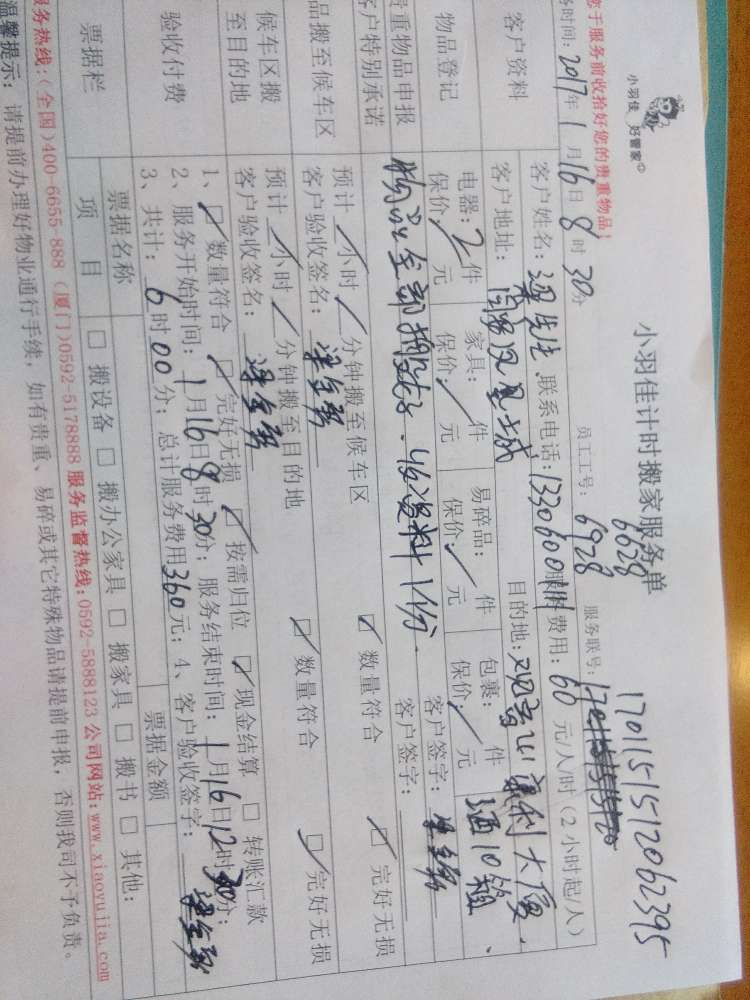 小羽佳 好管家
小羽佳计时搬家服务单
1701151512062395
您于服务前收拾好您的贵重物品!
员工工号: 6628
6928
服务联号:
时间: 2017年1月16日8时30分
客户资料
客户姓名: 联系电话: 费用: 60 元/人/时(2小时起/人)
客户地址: 目的地:
物品登记
电器: 2件 家具: / 件 易碎品: 件 包裹: 件 酒10箱、
保价: 元 保价: / 元 保价: / 元 保价: / 元
贵重物品申报
客户特别承诺
物品全部搬过去、 资料1份. 客户签字:
客户签字:
品搬至候车区
预计 / 小时 / 分钟搬至候车区 ☑ 数量符合 ☑ 完好无损
客户验收签名:
候车区搬
至目的地
预计 / 小时 / 分钟搬至目的地 ☑ 数量符合 ☑ 完好无损
客户验收签名:
验收付费
1、☑ 数量符合 ☑ 完好无损 ☑ 按需归位 ☑ 现金结算 □ 转账汇款
2、服务开始时间: 1月16日8时30分; 服务结束时间: 1月16日12时30分;
3、共计: 6时00分; 总计服务费用360元; 4、客户验收签字:
票据栏
票据名称 票据金额
项 目 □ 搬设备 □ 搬办公家具 □ 搬家具 □ 搬书 □ 其他:
服务热线:(全国)400-6655-888 (厦门)0592-5178888 服务监督热线:0592-5888123 公司网站:www.xiaoyujia.com
温馨提示: 请提前办理好物业通行手续, 如有贵重、易碎或其它特殊物品请提前申报, 否则我司不予负责。